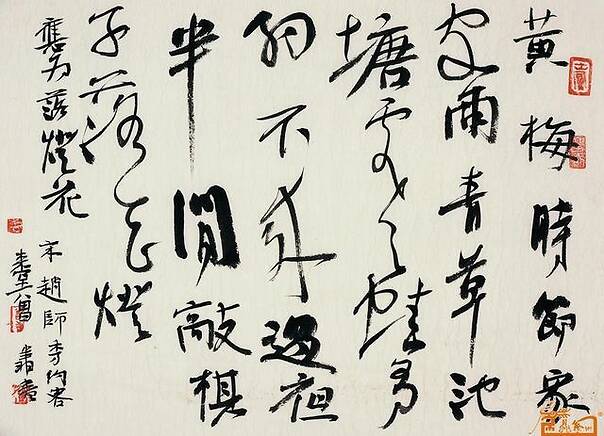 黃梅時節家
家雨青草池
塘處々蛙有
約不來過夜
半閒敲棋
子落花燈
應为落燈花
宋趙師秀約客